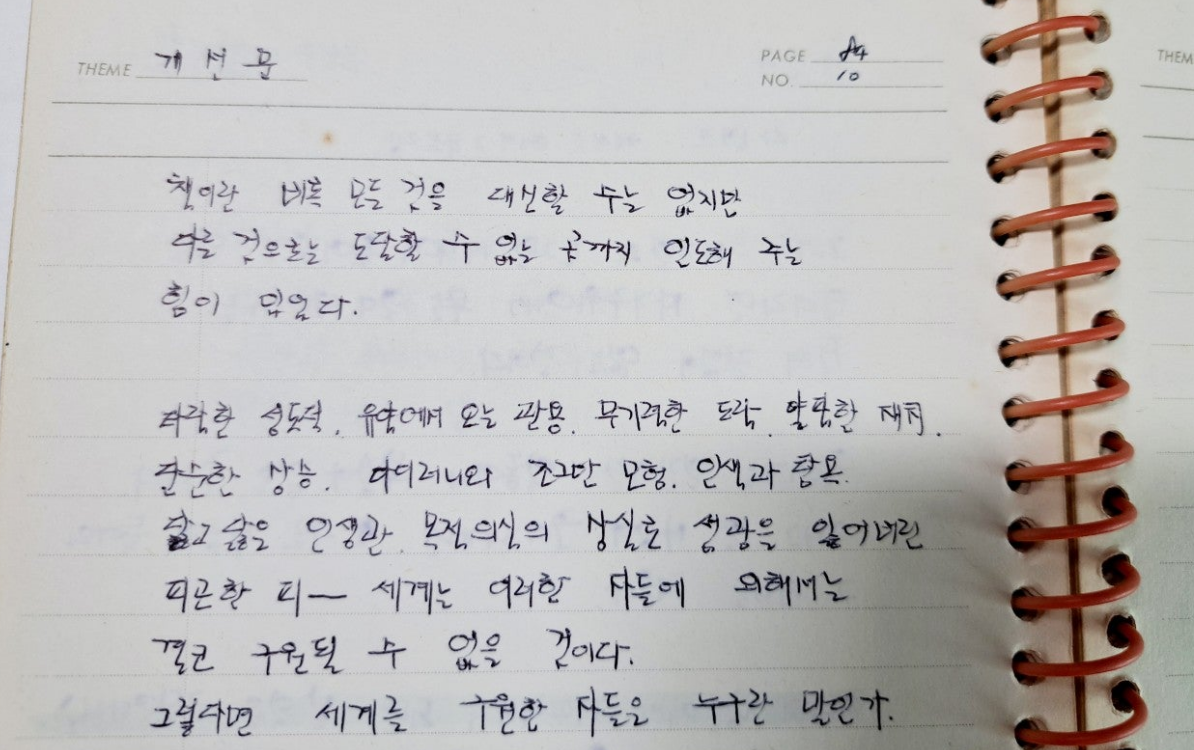 THEME 개선문
PAGE
NO. 10
THEM
책이란 비록 모든 것을 대신할 수는 없지만
다른 것으로는 도달할 수 없는 곳까지 인도해 주는
힘이 있었다.
성도덕, 유약에서 오는 관용, 무기력한 도락,
단순한 상승, 아이러니와 조그만 모험, 인색과 탐욕.
닳고 닳은 인생관, 목적의식의 상실로 생광을 잃어버린
피곤한 피— 세계는 이러한 자들에 의해서는
결코 구원될 수 없을 것이다.
그렇다면 세계를 구원한 자들은 누구란 말인가.